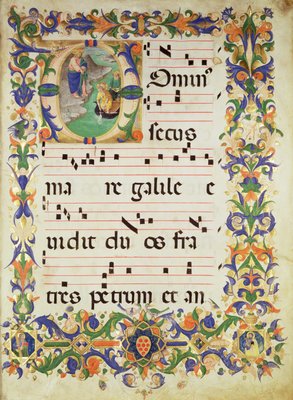 Dominꝰ
secus
ma re galile e
vidit du os fra
tres petrum et an